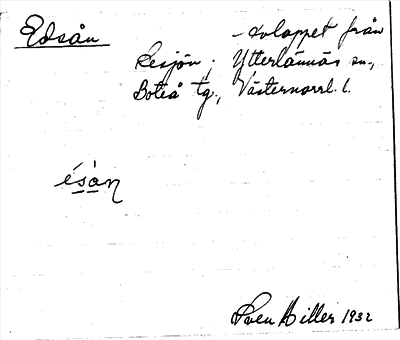 Edsån
- avloppet från
Resjön; Ytterlännäs sn.,
Boteå tg., Västernorrl. l.
ésàn
Sven Hiller 1932